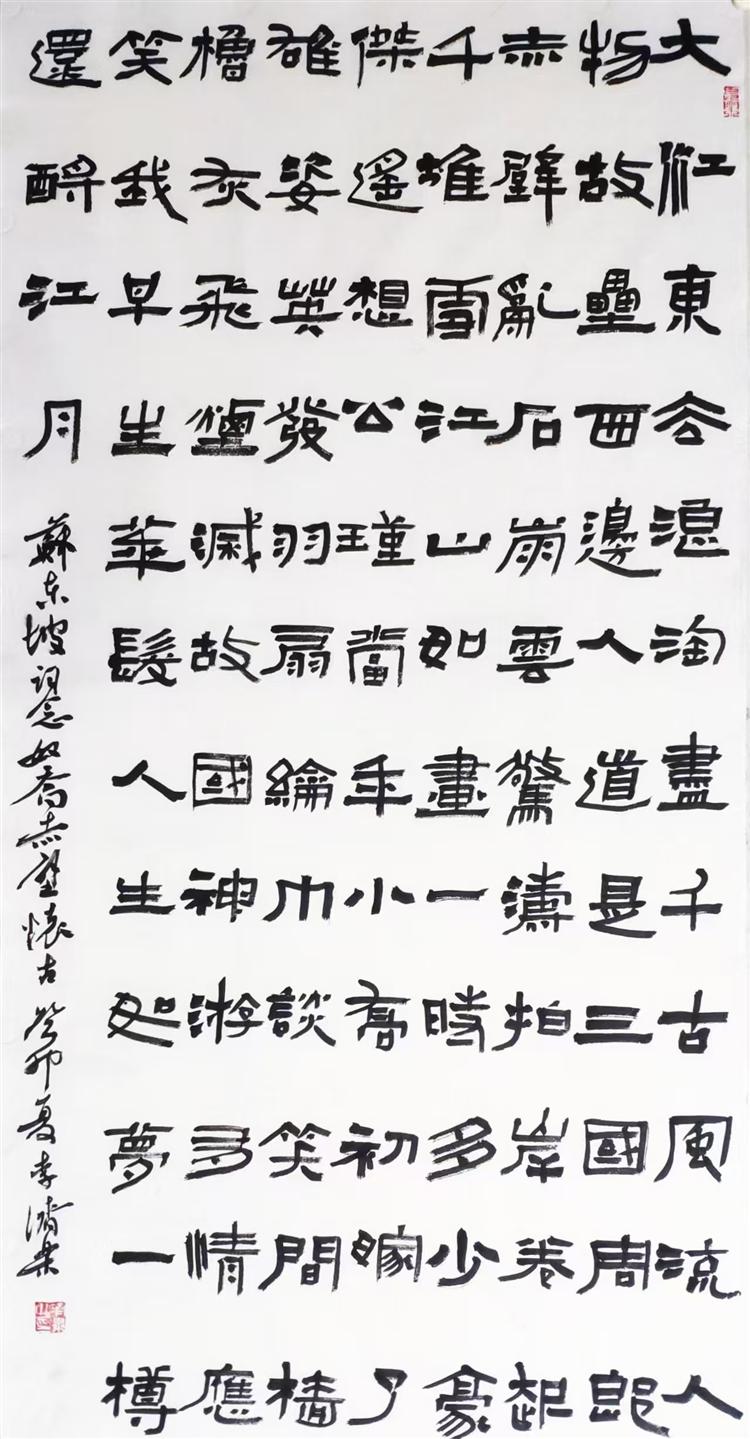 大江東去浪淘盡千古風流人
物故壘西邊人道是三國周郎
赤壁亂石崩雲驚濤拍岸卷起
千堆雪江山如畫一時多少豪
傑遙想公瑾當年小喬初嫁了
雄姿英發羽扇綸巾談笑間檣
櫓灰飛煙滅故國神游多情應
笑我早生華髮人生如夢一樽
還酹江月
蘇东坡词念奴喬赤壁懷古 癸卯夏李濟